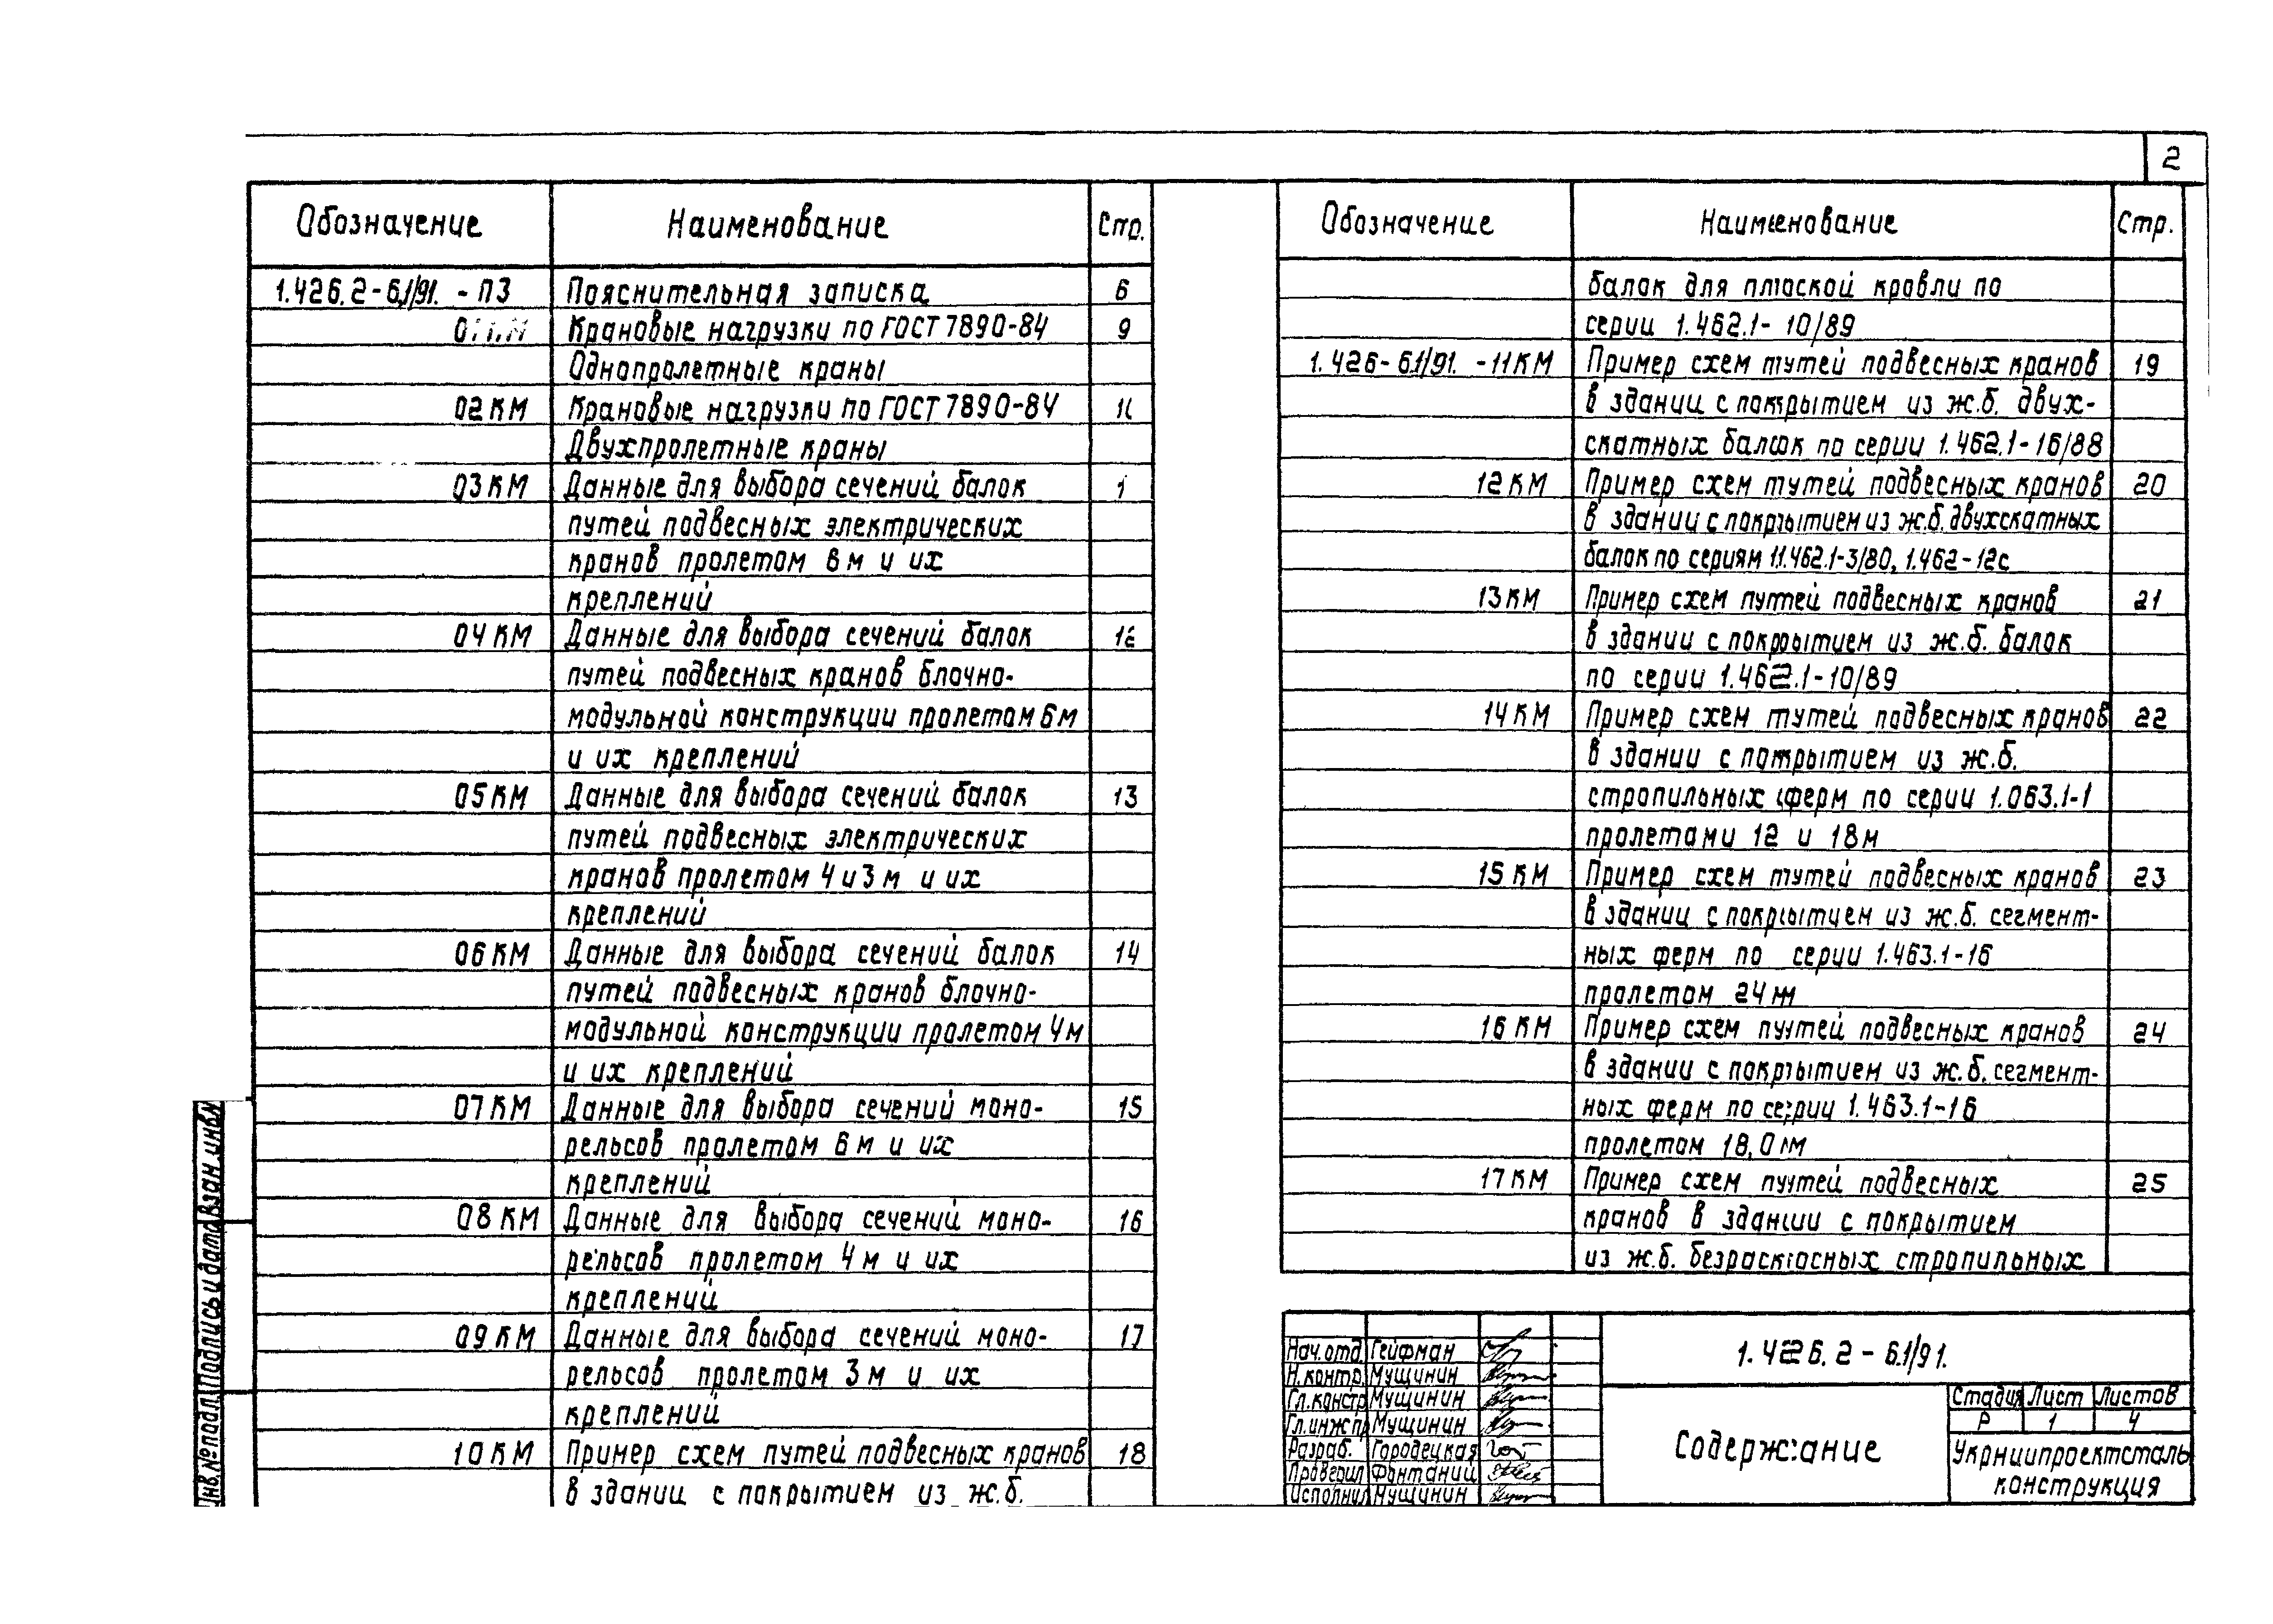 2
Обозначение Наименование Стр.
1.426.2-6.1/91. - ПЗ Пояснительная записка 6
Крановые нагрузки по ГОСТ 7890-84 9
Однопролетные краны
02 КМ Крановые нагрузки по ГОСТ 7890-84
Двухпролетные краны
03 КМ Данные для выбора сечений балок
путей подвесных электрических
кранов пролетом 6 м и их
креплений
04 КМ Данные для выбора сечений балок 12
путей подвесных кранов блочно-
модульной конструкции пролетом 6 м
и их креплений
05 КМ Данные для выбора сечений балок 13
путей подвесных электрических
кранов пролетом 4 и 3 м и их
креплений
06 КМ Данные для выбора сечений балок 14
путей подвесных кранов блочно-
модульной конструкции пролетом 4 м
и их креплений
07 КМ Данные для выбора сечений моно- 15
рельсов пролетом 6 м и их
креплений
08 КМ Данные для выбора сечений моно- 16
рельсов пролетом 4 м и их
креплений
09 КМ Данные для выбора сечений моно- 17
рельсов пролетом 3 м и их
креплений
10 КМ Пример схем путей подвесных кранов 18
в здании с покрытием из ж.б.
Обозначение Наименование Стр.
балок для плоской кровли по
серии 1.462.1-10/89
1.426-6.1/91. - 11 КМ Пример схем путей подвесных кранов 19
в здании с покрытием из ж.б. двух-
скатных балок по серии 1.462.1-16/88
12 КМ Пример схем путей подвесных кранов 20
в здании с покрытием из ж.б. двухскатных
балок по сериям 1.462.1-3/80, 1.462-12с
13 КМ Пример схем путей подвесных кранов 21
в здании с покрытием из ж.б. балок
по серии 1.462.1-10/89
14 КМ Пример схем путей подвесных кранов 22
в здании с покрытием из ж.б.
стропильных ферм по серии 1.063.1-1
пролетами 12 и 18 м
15 КМ Пример схем путей подвесных кранов 23
в здании с покрытием из ж.б. сегмент-
ных ферм по серии 1.463.1-16
пролетом 24 м
16 КМ Пример схем путей подвесных кранов 24
в здании с покрытием из ж.б. сегмент-
ных ферм по серии 1.463.1-16
пролетом 18,0 м
17 КМ Пример схем путей подвесных 25
кранов в здании с покрытием
из ж.б. безраскосных стропильных
Нач.отд. Гейфман
Н.контр. Мущинин
Гл.констр Мущинин
Гл.инж.пр Мущинин
Разраб. Городецкая
Проверил Фонтаний
Исполнил Мущинин
1.426.2 - 6.1/91.
Содержание
Стадия Лист Листов
Р 1 4
Укрниипроектсталь
конструкция
Инв.№ подл. Подпись и дата Взам.инв.№